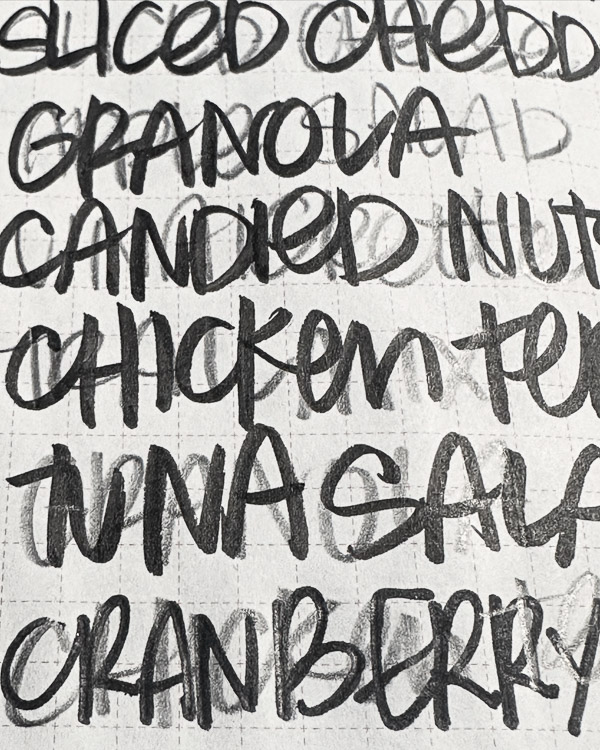 SLICED CHEDD
GRANOLA
CANDIED NUTS
CHICKEN TEN
TUNA SALA
CRANBERRY